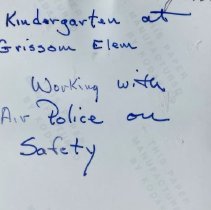 Kindergarten at
Grissom Elem
Working with
Air Police on
Safety